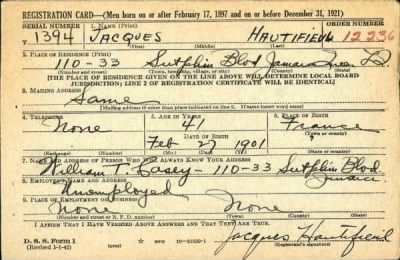 REGISTRATION CARD—(Men born on or after February 17, 1897 and on or before December 31, 1921)
SERIAL NUMBER 1. NAME (Print) ORDER NUMBER
1394 JACQUES HAUTIFIEUL 12236
(First) (Middle) (Last)
2. PLACE OF RESIDENCE (Print)
110-33 Sutphin Blvd Jamaica
(Number and street) (Town, township, village, or city) (County) (State)
[THE PLACE OF RESIDENCE GIVEN ON THE LINE ABOVE WILL DETERMINE LOCAL BOARD
JURISDICTION; LINE 2 OF REGISTRATION CERTIFICATE WILL BE IDENTICAL]
3. MAILING ADDRESS
Same
[Mailing address if other than place indicated on line 2. If same insert word same]
4. TELEPHONE 5. AGE IN YEARS 6. PLACE OF BIRTH
None 41 France
DATE OF BIRTH (Town or county)
Feb 27 1901
(Exchange) (Number) (Mo.) (Day) (Yr.) (State or country)
7. NAME AND ADDRESS OF PERSON WHO WILL ALWAYS KNOW YOUR ADDRESS
William T. Casey - 110-33 Sutphin Blvd
Jamaica
8. EMPLOYER'S NAME AND ADDRESS
Unemployed
9. PLACE OF EMPLOYMENT OR BUSINESS
None None
(Number and street or R. F. D. number) (Town) (County) (State)
I AFFIRM THAT I HAVE VERIFIED ABOVE ANSWERS AND THAT THEY ARE TRUE.
D. S. S. Form 1
(Revised 1-1-42) (over) Jacques Hautifieul
(Registrant's signature)